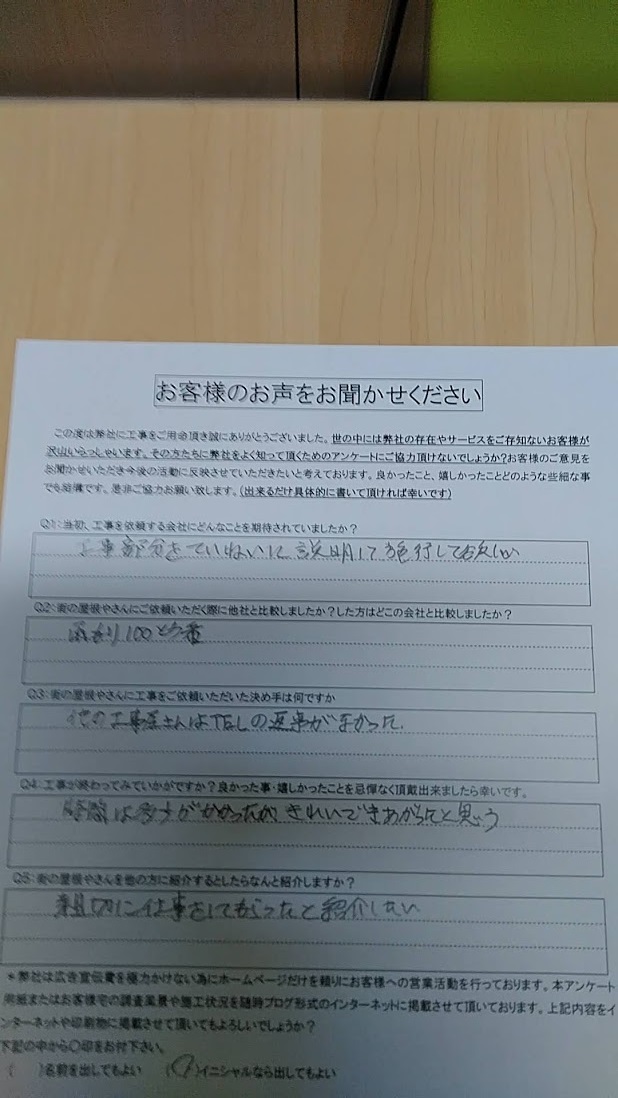 お客様のお声をお聞かせください
この度は弊社に工事をご用命頂き誠にありがとうございました。世の中には弊社の存在やサービスをご存知ないお客様が
沢山いらっしゃいます。その方たちに弊社をよく知って頂くためのアンケートにご協力頂けないでしょうか?お客様のご意見を
お聞かせいただき今後の活動に反映させていただきたいと考えております。良かったこと、嬉しかったことどのような些細な事
でも結構です。是非ご協力お願い致します。(出来るだけ具体的に書いて頂ければ幸いです)
Q1:当初、工事を依頼する会社にどんなことを期待されていましたか?
工事部分をていねいに説明して施行して欲しい
Q2:街の屋根やさんにご依頼いただく際に他社と比較しましたか?した方はどこの会社と比較しましたか?
雨もり100とう番
Q3:街の屋根やさんに工事をご依頼いただいた決め手は何ですか
他の工事屋さんはTELの返事がなかった
Q4:工事が終わってみていかがですか?良かった事・嬉しかったことを忌憚なく頂戴出来ましたら幸いです。
時間は多少がかかったがきれいできあがったと思う
Q5:街の屋根やさんを他の方に紹介するとしたらなんと紹介しますか?
親切に仕事をしてもらったと紹介したい
*弊社は広告宣伝費を極力かけない為にホームページだけを頼りにお客様への営業活動を行っております。本アンケート
用紙またはお客様宅の調査風景や施工状況を随時ブログ形式のインターネットに掲載させて頂いております。上記内容をイ
ンターネットや印刷物に掲載させて頂いてもよろしいでしょうか?
下記の中から〇印をお付下さい。
( )名前を出してもよい (〇)イニシャルなら出してもよい